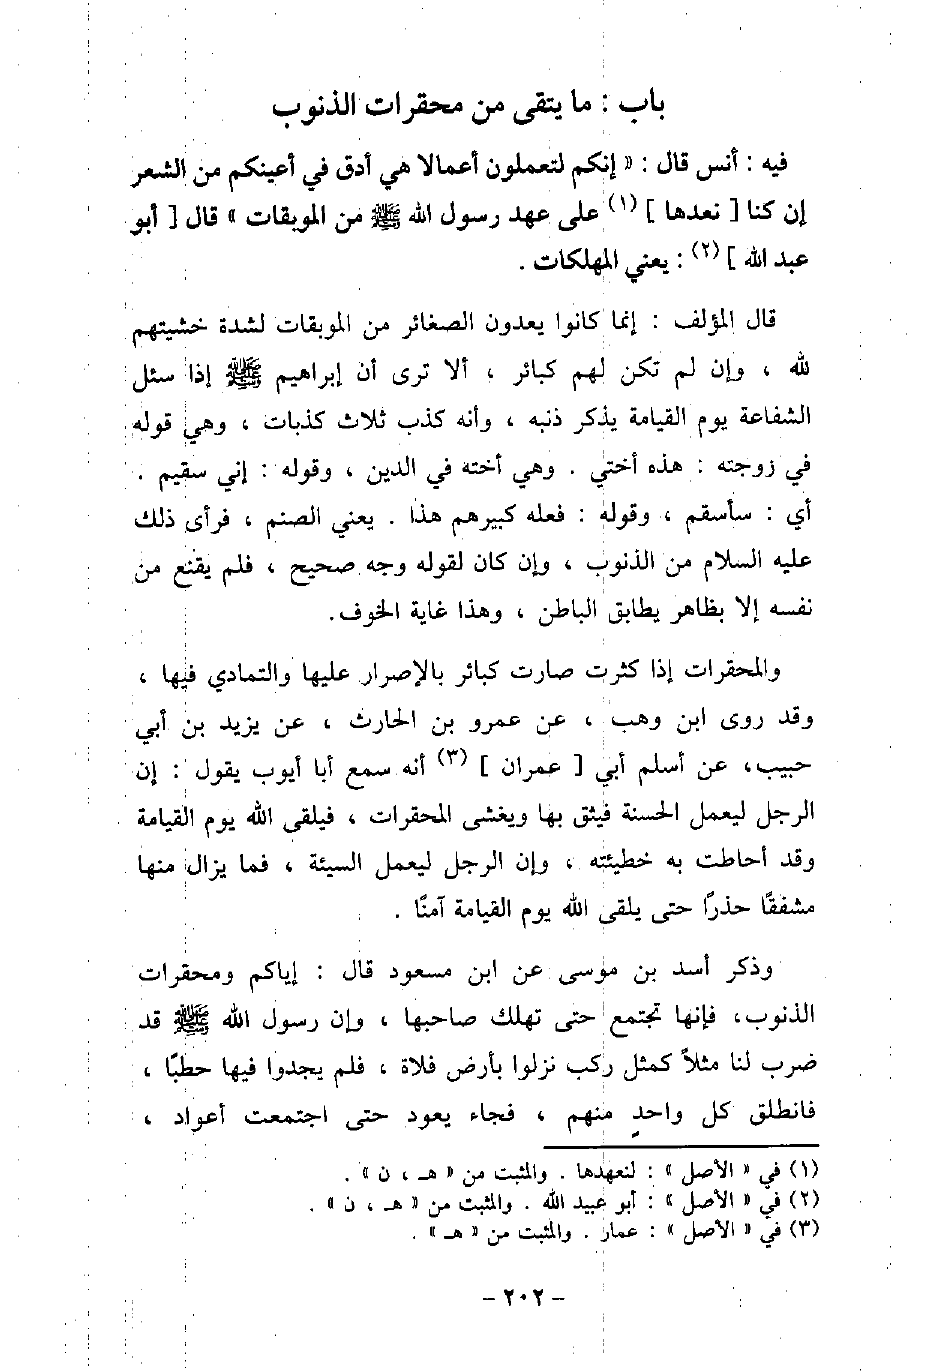 باب : ما يتقى من محقرات الذنوب
فيه : أنس قال : « إنكم لتعملون أعمالا هي أدق في أعينكم من الشعر
إن كنا [ نعدها ] (١) على عهد رسول الله ﷺ من الموبقات » قال [ أبو
عبد الله ] (٢) : يعني المهلكات .
قال المؤلف : إنما كانوا يعدون الصغائر من الموبقات لشدة خشيتهم
لله ، وإن لم تكن لهم كبائر ، ألا ترى أن إبراهيم ﷺ إذا سئل
الشفاعة يوم القيامة يذكر ذنبه ، وأنه كذب ثلاث كذبات ، وهي قوله
في زوجته : هذه أختي . وهي أخته في الدين ، وقوله : إني سقيم .
أي : سأسقم ، وقوله : فعله كبيرهم هذا . يعني الصنم ، فرأى ذلك
عليه السلام من الذنوب ، وإن كان لقوله وجه صحيح ، فلم يقنع من
نفسه إلا بظاهر يطابق الباطن ، وهذا غاية الخوف.
والمحقرات إذا كثرت صارت كبائر بالإصرار عليها والتمادي فيها ،
وقد روى ابن وهب ، عن عمرو بن الحارث ، عن يزيد بن أبي
حبيب، عن أسلم أبي [ عمران ] (٣) أنه سمع أبا أيوب يقول : إن
الرجل ليعمل الحسنة فيثق بها ويغشى المحقرات ، فيلقى الله يوم القيامة
وقد أحاطت به خطيئته ، وإن الرجل ليعمل السيئة ، فما يزال منها
مشفقًا حذرًا حتى يلقى الله يوم القيامة آمنًا .
وذكر أسد بن موسى عن ابن مسعود قال : إياكم ومحقرات
الذنوب، فإنها تجتمع حتى تهلك صاحبها ، وإن رسول الله ﷺ قد
ضرب لنا مثلاً كمثل ركب نزلوا بأرض فلاة ، فلم يجدوا فيها حطبًا ،
فانطلق كل واحدٍ منهم ، فجاء يعود حتى اجتمعت أعواد ،
(١) في « الأصل » : لنعهدها . والمثبت من « هـ ، ن » .
(٢) في « الأصل » : أبو عبيد الله . والمثبت من « هـ ، ن » .
(٣) في « الأصل » : عمار . والمثبت من « هـ » .
- ٢٠٢ -